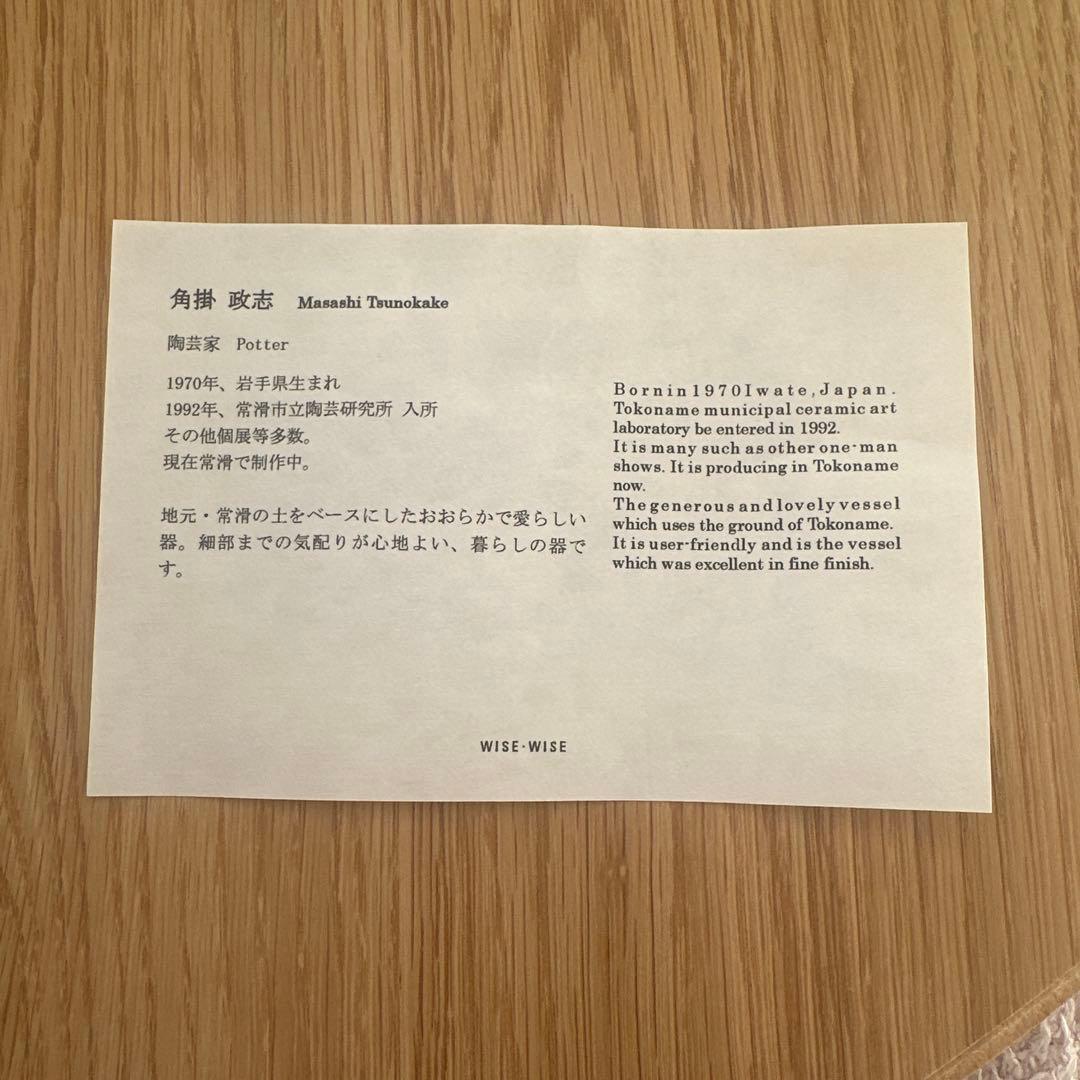 角掛 政志 Masashi Tsunokake
陶芸家 Potter
1970年、岩手県生まれ
1992年、常滑市立陶芸研究所 入所
その他個展等多数。
現在常滑で制作中。
地元・常滑の土をベースにしたおおらかで愛らしい
器。細部までの気配りが心地よい、暮らしの器で
す。
Born in 1970 Iwate, Japan.
Tokoname municipal ceramic art
laboratory be entered in 1992.
It is many such as other one-man
shows. It is producing in Tokoname
now.
The generous and lovely vessel
which uses the ground of Tokoname.
It is user-friendly and is the vessel
which was excellent in fine finish.
WISE·WISE